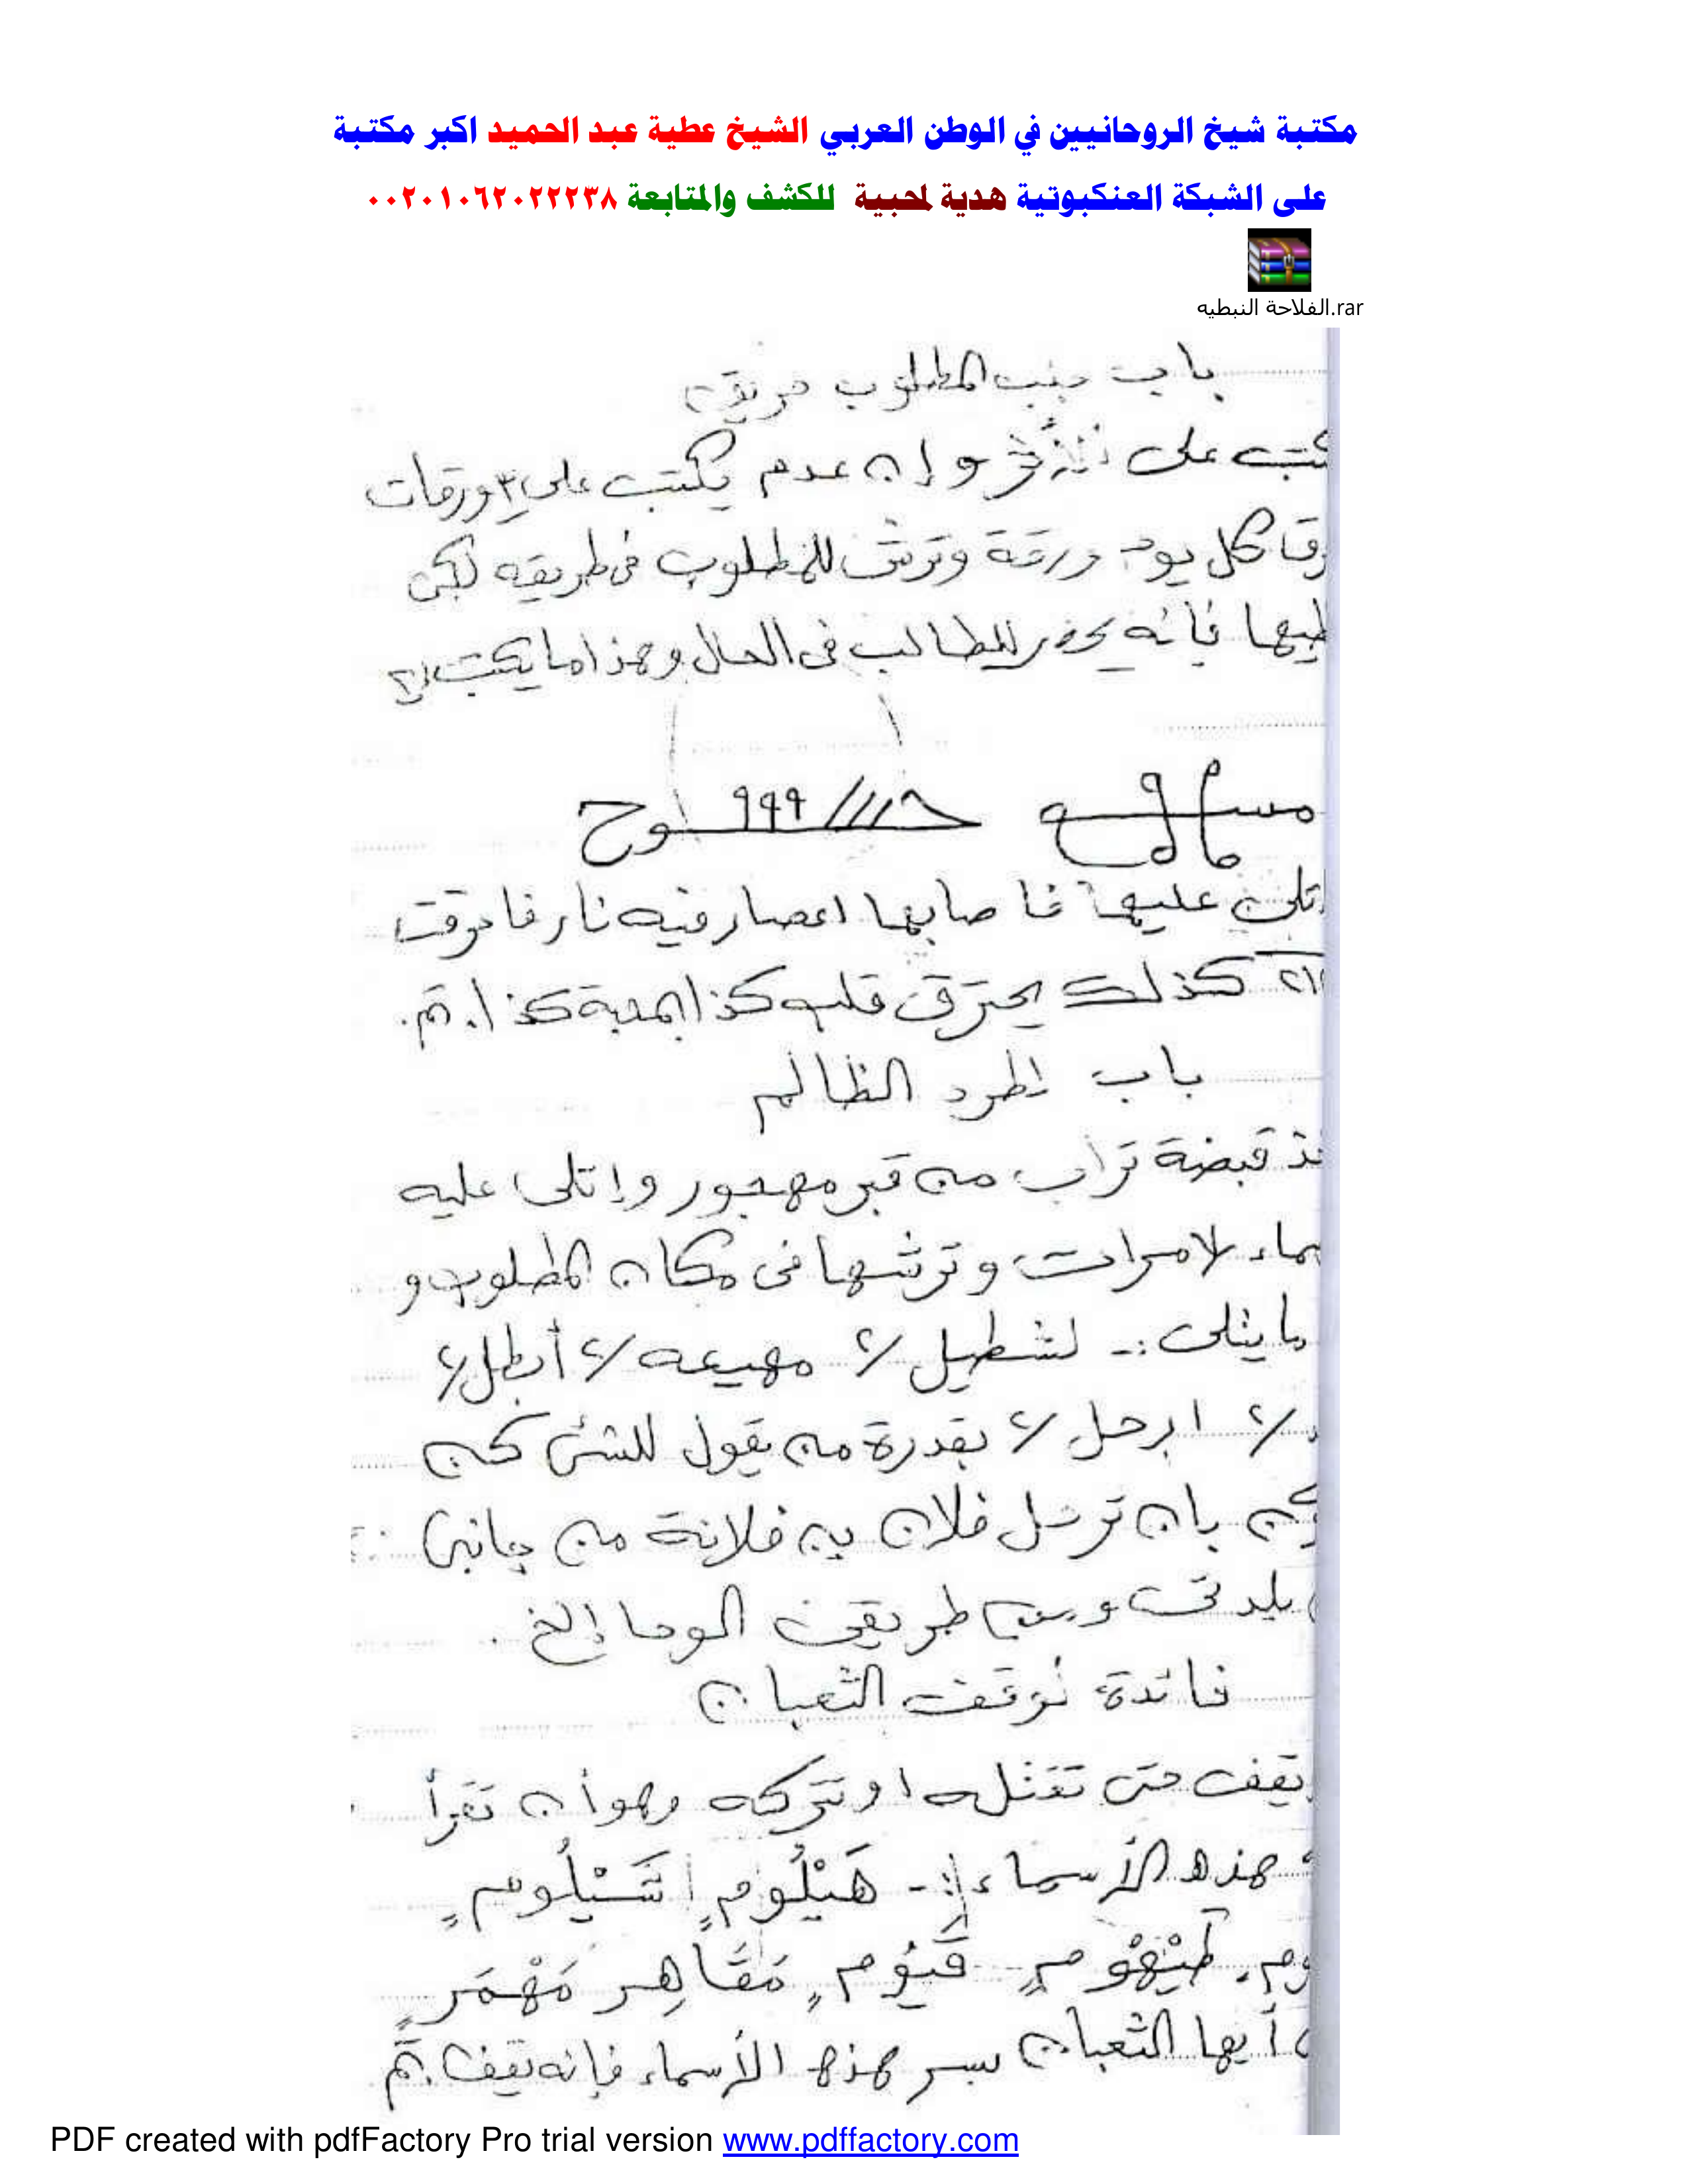 مكتبة شيخ الروحانيين في الوطن العربي الشيخ عطية عبد الحميد اكبر مكتبة
على الشبكة العنكبوتية هدية لمحبية للكشف والمتابعة ٠٠٢٠١٠٦٢٠٢٢٢٣٨
الفلاحة النبطيه.rar
باب المطلوب
على وإن عدم يكتب على ٣ ورقات
كل يوم ورقة وترش للمطلوب في طريقه لكي
فأنه يحضر للطالب في الحال وهذا ما يكتب
٩٩٩
عليها فأصابها اعصار فيه نار فاحترقت
كذلك يحترق قلب كذا بمحبة كذا. تم.
باب لطرد الظالم
قبضة تراب من قبر مهجور وإتلى عليه
لامرات وترشها في مكان المطلوب و
ما يتلى :- لشطيل / مهيعه / أبطل /
ابرحل / بقدرة من يقول للشئ كن
بان ترحل فلان بن فلانة من جانبي
بلدتي ومن طريقي الوحا إلخ .
فائدة توقف الثعبان
يقف حتى تقتله او تتركه وهو أن تقرأ
هذه الأسماء :- هَيْلُومٍ شَيْلُومٍ
طَيْهُومٍ قَيُّومٍ مَقَاهِر مَهْمَرٍ
أيها الثعبان بسر هذه الأسماء فإنه يقف. تم
PDF created with pdfFactory Pro trial version www.pdffactory.com